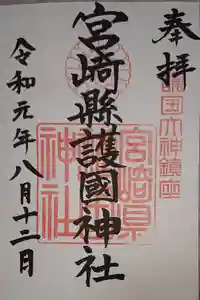 奉拝
護国大神鎮座
宮崎縣護國神社
宮崎県
神社
令和元年八月十二日